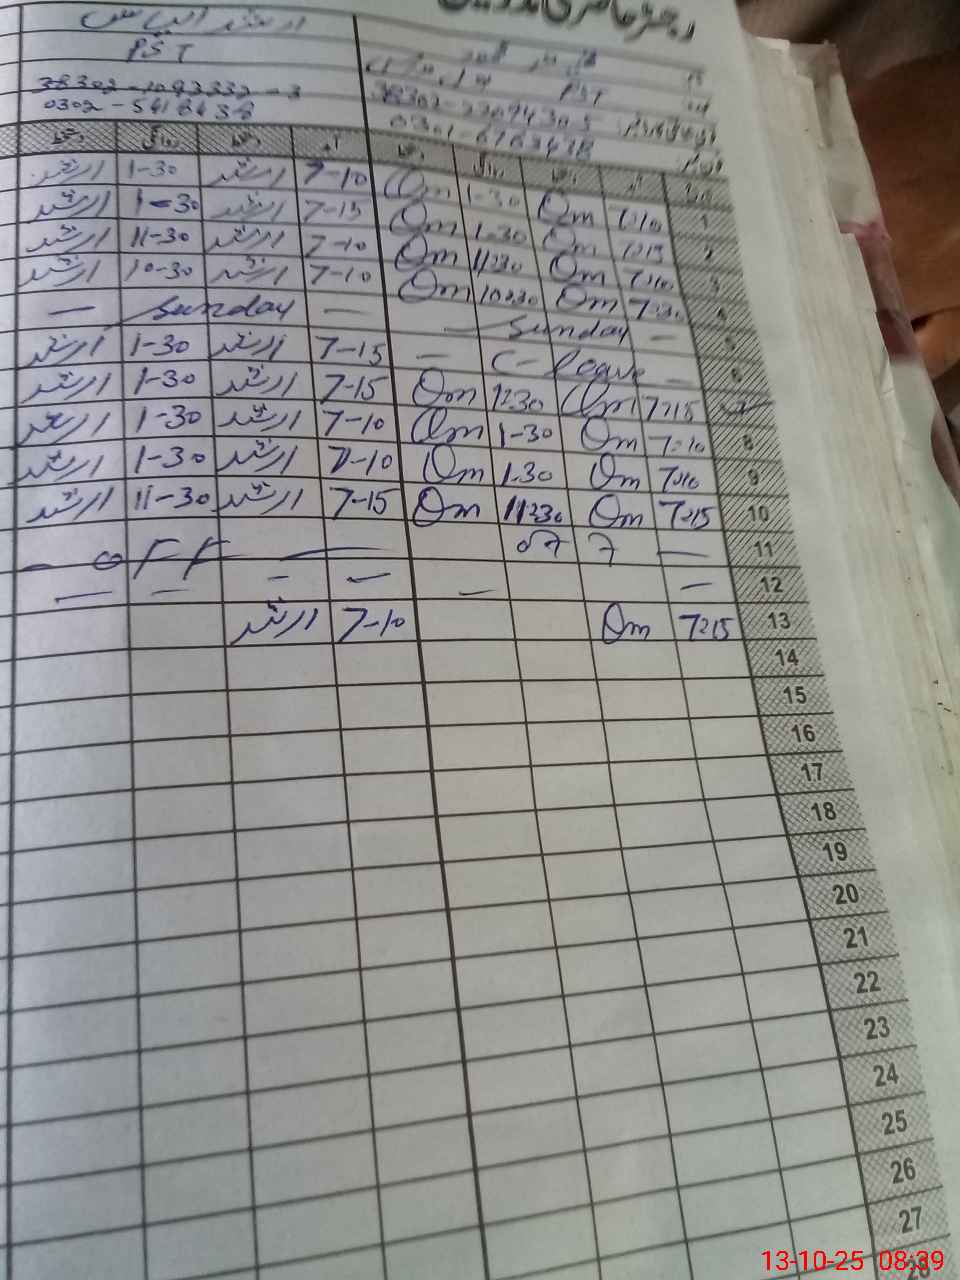 رجسٹر حاضری مدرسین
ارشد الیاس
PST
PST
38302-1093332-3
0302-5618638
دستخط روانگی دستخط آمد دستخط روانگی دستخط آمد
1 7:10 Om 1-30 Om 7-10 ارشد 1-30 ارشد
2 7:15 Om 1-30 Om 7-15 ارشد 1-30 ارشد
3 7:10 Om 11:30 Om 7-10 ارشد 11-30 ارشد
4 7:30 Om 10:30 Om 7-10 ارشد 10-30 ارشد
5 — Sunday — — Sunday —
6 — C-leave — 7-15 ارشد 1-30 ارشد
7 7:15 Om 1:30 Om 7-15 ارشد 1-30 ارشد
8 7:10 Om 1-30 Om 7-10 ارشد 1-30 ارشد
9 7:10 Om 1-30 Om 7-10 ارشد 1-30 ارشد
10 7:15 Om 11:30 Om 7-15 ارشد 11-30 ارشد
11 — off — OFF —
12 — — — — — —
13 7:15 Om 7-10 ارشد
14
15
16
17
18
19
20
21
22
23
24
25
26
27
28
13-10-25 08:39